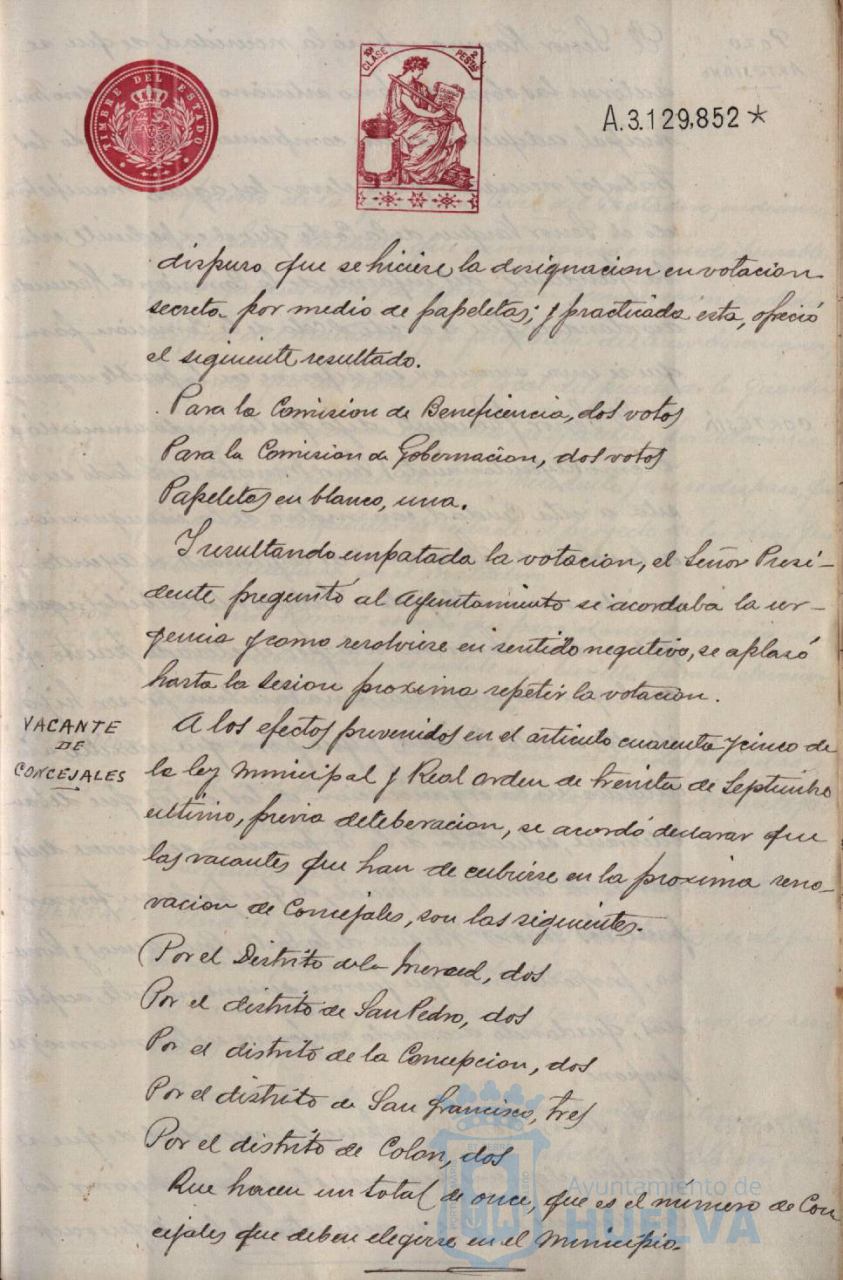 TIMBRE DEL ESTADO
10ª CLASE 2 PESETAS
A.3.129,852 *
dispuso que se hiciese la designacion en votacion
secreta por medio de papeletas; y practicada esta, ofreció
el siguiente resultado.
Para la Comision de Beneficencia, dos votos
Para la Comision de Gobernacion, dos votos
Papeletas en blanco, una.
Y resultando empatada la votacion, el Señor Presi-
dente preguntó al Ayuntamiento si acordaba la ur-
gencia y como resolviese en sentido negativo, se aplazó
hasta la sesion proxima repetir la votacion.
VACANTE
DE
CONCEJALES
A los efectos prevenidos en el articulo cuarenta y cinco de
la ley Municipal y Real orden de treinta de Septiembre
ultimo, previa deliberacion, se acordó declarar que
las vacantes que han de cubrirse en la proxima reno-
vacion de Concejales, son las siguientes.
Por el Distrito de la Merced, dos
Por el distrito de San Pedro, dos
Por el distrito de la Concepcion, dos
Por el distrito de San Francisco, tres
Por el distrito de Colon, dos
Que hacen un total de once, que es el numero de Con
cejales que deben elegirse en el Municipio.
Ayuntamiento de
HUELVA